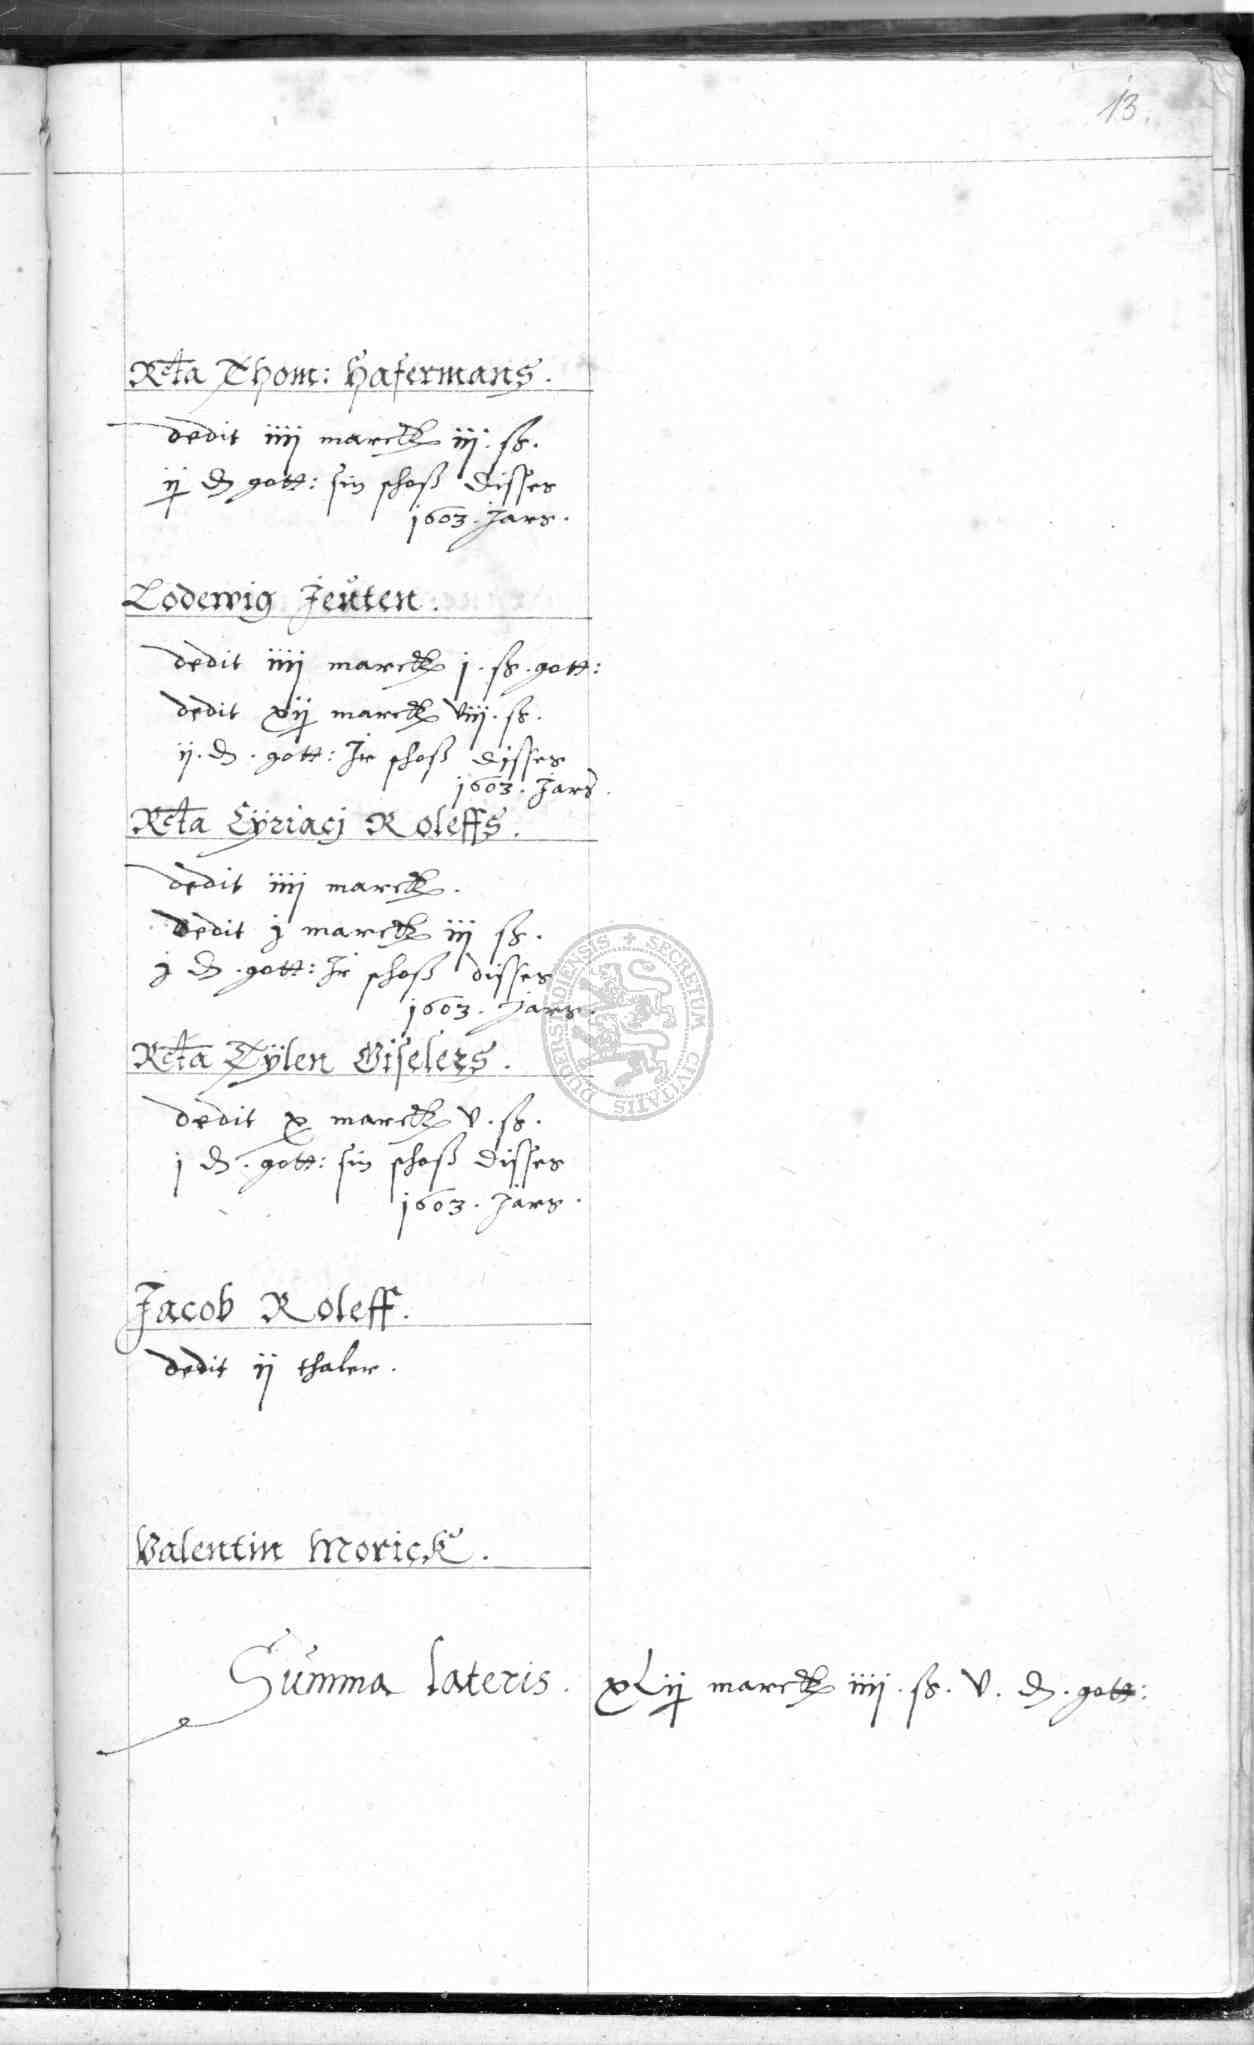 13.
Rcta Thom: Hafermans.
dedit iiij marck iij. ß.
ij d gott: sin schoß disses
1603. Jars.
Lodewig Jeuten.
dedit iiij marck j. ß. gott:
dedit xij marck viij. ß.
ij. d. gott: Ir schoß disses
1603. Jars.
Rcta Cÿriacj Roleffs.
dedit iiij marck.
dedit j marck iij ß.
j d. gott: Ir schoß disses
1603. Jars.
Rcta Tÿlen Giselers.
dedit x marck v. ß.
j d. gott: sin schoß disses
1603. Jars.
Jacob Roleff.
dedit ij thaler.
Valentin Morick.
Summa lateris. xLij marck iiij. ß. v. d. gott:
SECRETUM CIVITATIS DUDERSTADIENSIS